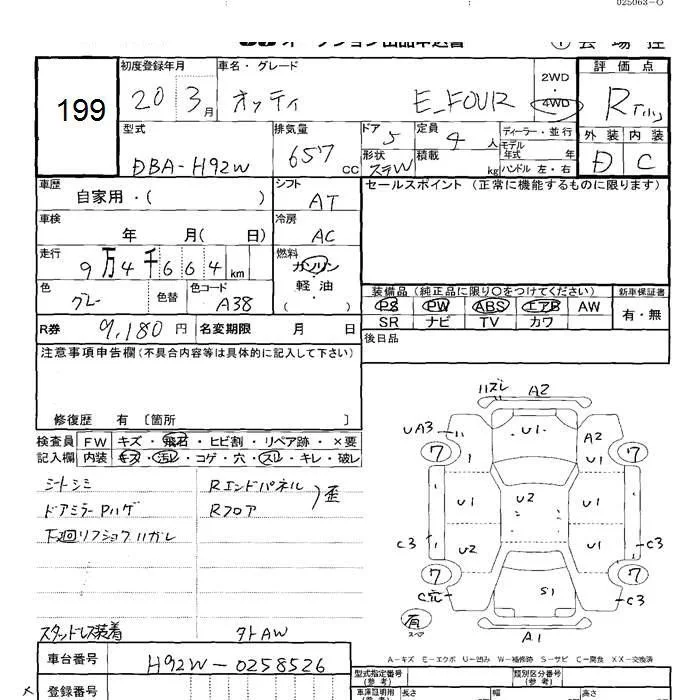 025063-O
オークション出品申込書
① 会場控
199
初度登録年月 車名・グレード 2WD・4WD 評価点
20 3月 オッティ E_FOUR R
型式 排気量 ドア 定員 ディーラー・並行 外装 内装
DBA-H92W 657CC 5 4人 モデル年式 年 D C
形状 積載 kg ハンドル 左・右
ステW
車歴 自家用・( ) シフト AT セールスポイント (正常に機能するものに限ります)
車検 年 月( 日) 冷房 AC
走行 9万4千664km 燃料 ガソリン 軽油 ( )
色 グレー 色替 色コード A38
装備品 (純正品に限り○をつけてください) 新車保証書
PS PW ABS エアB AW 有・無
SR ナビ TV カワ
R券 9,180円 名変期限 月 日 後日品
注意事項申告欄 (不具合内容等は具体的に記入して下さい)
修復歴 有 〔箇所 〕
検査員記入欄 FW キズ・飛石・ヒビ割・リペア跡・×要
内装 キズ・汚レ・コゲ・穴・スレ・キレ・破レ
シートシミ Rエンドパネル
ドアミラーPハゲ Rフロア 歪
下廻リフショクハガレ
スタッドレス装着 タトAW
ハズレ A2
UA3 U1 A2
7 U1 7
U1 U2 U1
C3 U2 U1 C3
7 7
C穴 S1 C3
有 スペア A1
A-キズ E-エクボ U-凹み W-補修跡 S-サビ C-腐食 XX-交換済
車台番号 H92W-0258526
登録番号
型式指定番号(参考) 類別区分番号(参考)
車庫証明用(参考) 長さ 幅 高さ